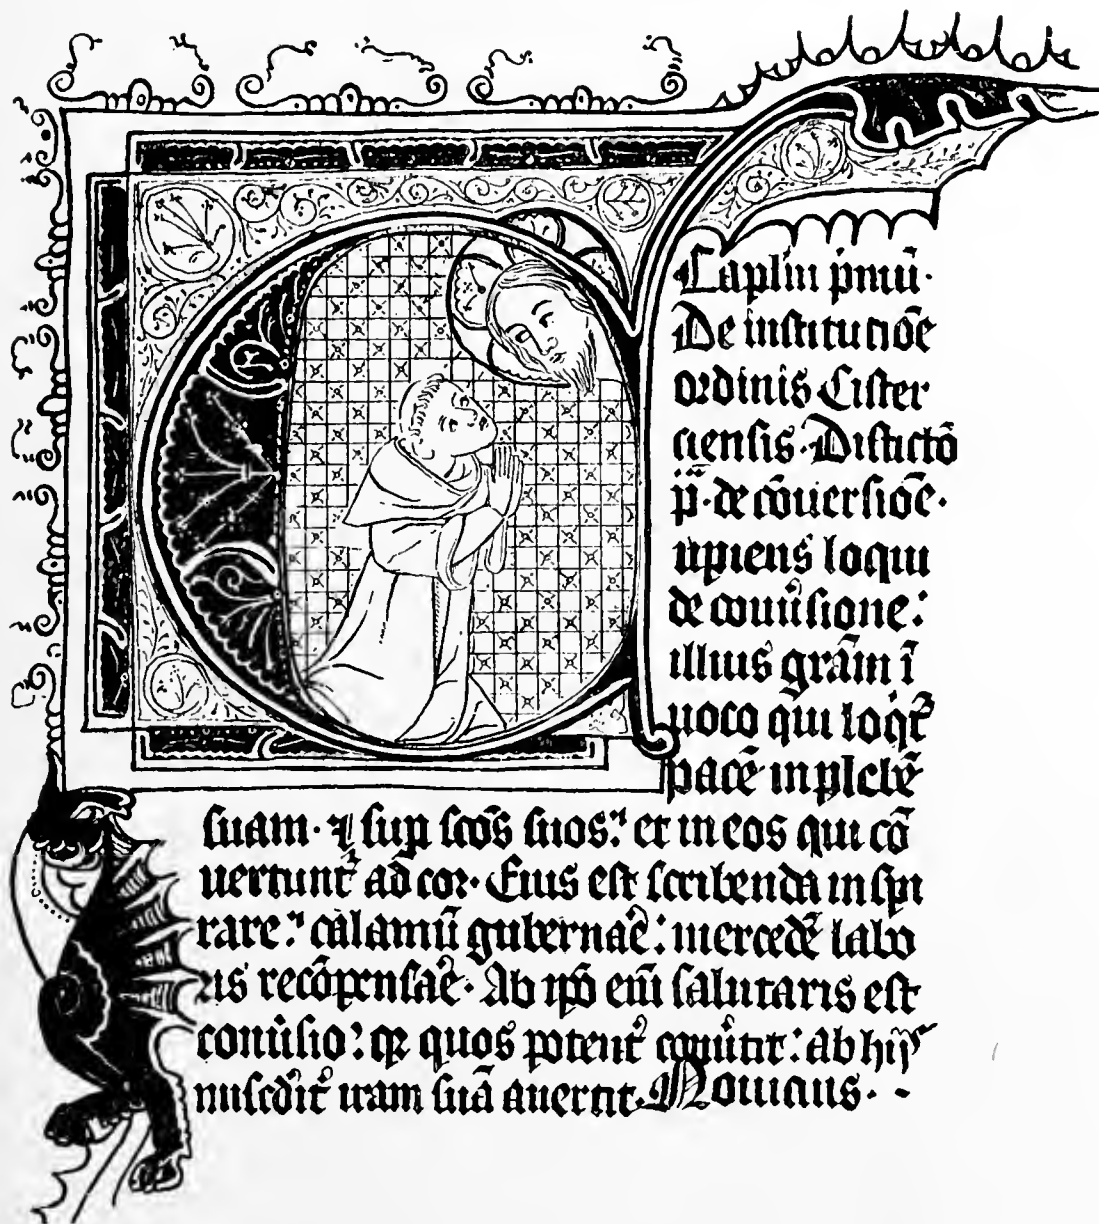 Caplm pmū·
De institutiōe
ordinis Cister
ciensis· Distictō
p̄· de cōuersiōe·
upiens loqui
de conūsione:
illius grām ī
uoco qui loqr̄
pacē in plebē
suam· ⁊ sup scōs suos: et in eos qui cō
uertunt̄ ad cor· Eius est scribenda inspi
rare: calamū gubernaē: mercedē labo
ris recōpensaē· Ab ipō eīm salutaris est
conūsio: qꝛ quos potent̄ conūtit: ab hijs
miscd̄it̄ iram suā auertit· Nouicius· -